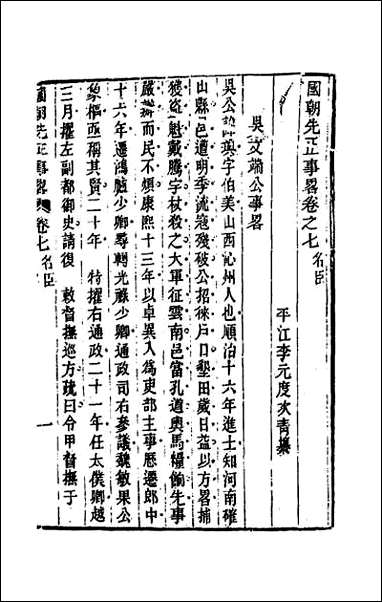 國朝先正事畧卷之七 名臣
平江李元度次青纂
吳文端公事畧
吳公諱琠字伯美山西沁州人也順治十六年進士知河南確
山縣邑遭明季流寇殘破公招徠戶口墾田歲日益以方畧捕
獲盜魁戴騰宇杖殺之大軍征雲南邑當孔道輿馬糧餉先事
嚴辦而民不煩康熙十三年以卓異入為吏部主事歷遷郎中
十六年遷鴻臚少卿尋轉光祿少卿通政司右參議魏敏果公
象樞亟稱其賢二十年 特擢右通政二十一年任太僕卿越
三月擢左副都御史請復 敕督撫巡方疏曰令甲督撫于
國朝先正事畧 卷七 名臣 一